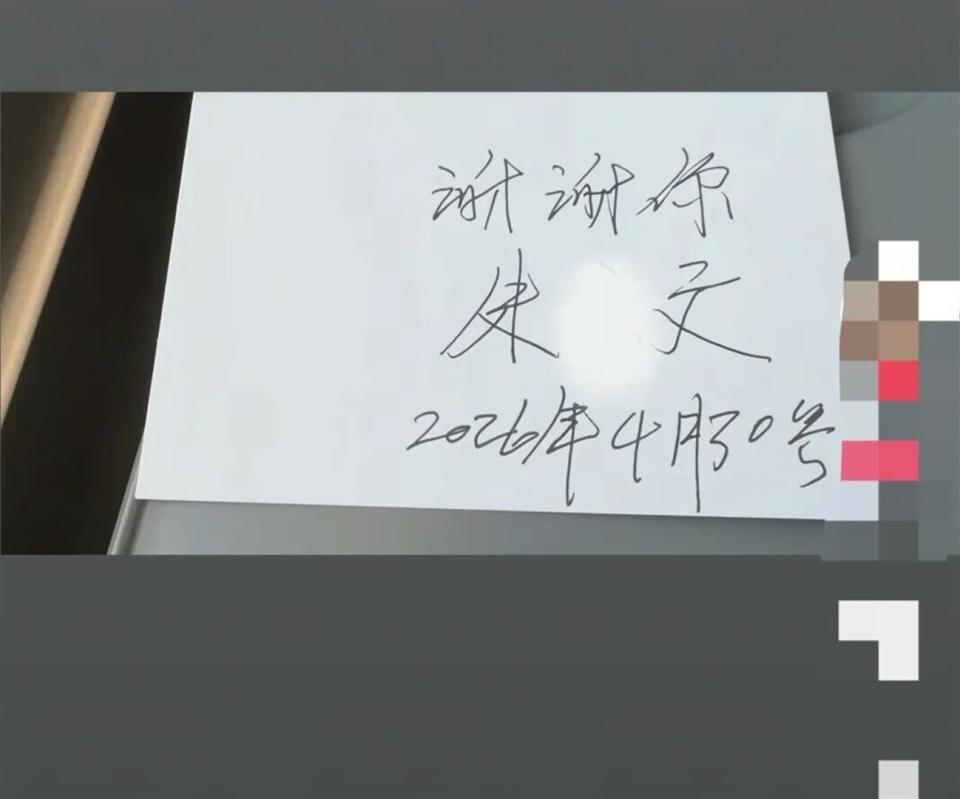 谢谢你
朱 文
2026年4月30号